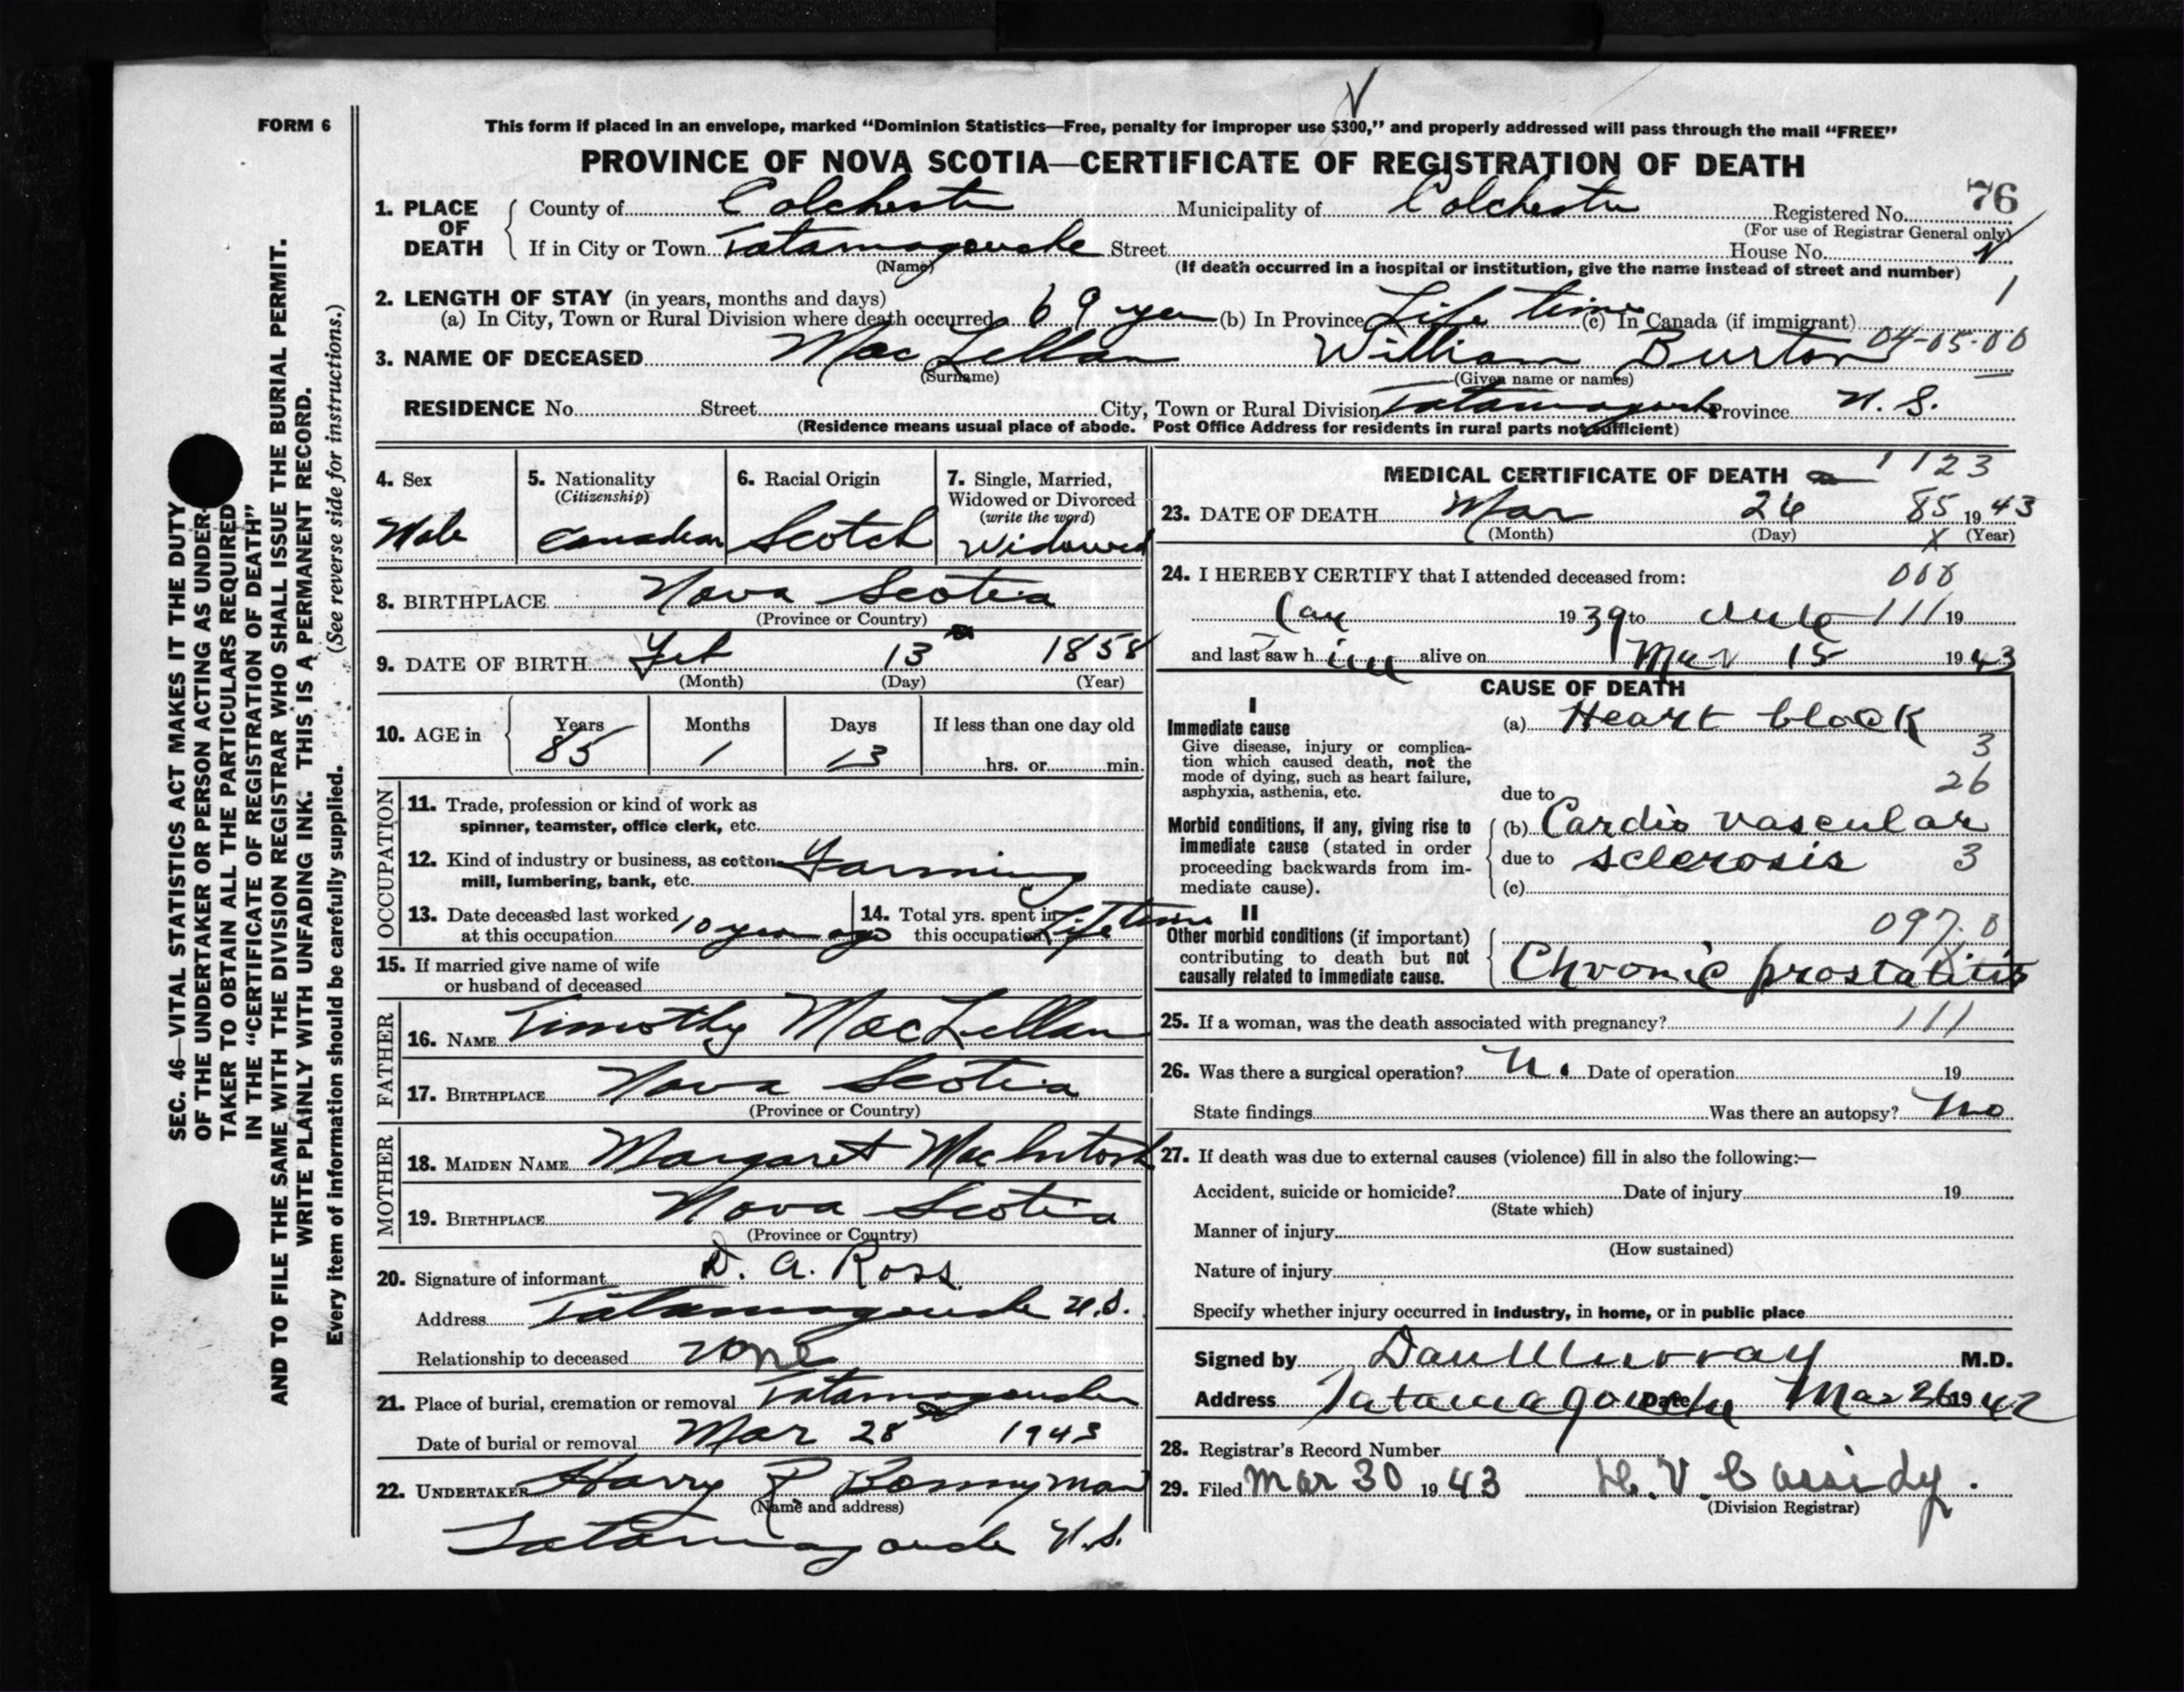 FORM 6
This form if placed in an envelope, marked “Dominion Statistics—Free, penalty for improper use $300,” and properly addressed will pass through the mail “FREE”
PROVINCE OF NOVA SCOTIA—CERTIFICATE OF REGISTRATION OF DEATH
76
1. PLACE OF DEATH County of Colchester Municipality of Colchester Registered No.
(For use of Registrar General only)
If in City or Town Tatamagouche Street House No.
(Name) (If death occurred in a hospital or institution, give the name instead of street and number)
2. LENGTH OF STAY (in years, months and days)
(a) In City, Town or Rural Division where death occurred 69 years (b) In Province Life time (c) In Canada (if immigrant)
04-05-00
3. NAME OF DECEASED MacLellan William Burton
(Surname) (Given name or names)
RESIDENCE No. Street City, Town or Rural Division Tatamagouche Province N. S.
(Residence means usual place of abode. Post Office Address for residents in rural parts not sufficient)
4. Sex Male
5. Nationality (Citizenship) Canadian
6. Racial Origin Scotch
7. Single, Married, Widowed or Divorced (write the word) Widowed
8. BIRTHPLACE Nova Scotia
(Province or Country)
9. DATE OF BIRTH Feb 13 1858
(Month) (Day) (Year)
10. AGE in Years Months Days If less than one day old
85 1 13 hrs. or min.
OCCUPATION
11. Trade, profession or kind of work as
spinner, teamster, office clerk, etc.
12. Kind of industry or business, as cotton Farming
mill, lumbering, bank, etc.
13. Date deceased last worked
at this occupation 10 years ago
14. Total yrs. spent in
this occupation Life time
15. If married give name of wife
or husband of deceased
FATHER
16. NAME Timothy MacLellan
17. BIRTHPLACE Nova Scotia
(Province or Country)
MOTHER
18. MAIDEN NAME Margaret MacIntosh
19. BIRTHPLACE Nova Scotia
(Province or Country)
20. Signature of informant D. A. Ross
Address Tatamagouche N.S.
Relationship to deceased none
21. Place of burial, cremation or removal Tatamagouche
Date of burial or removal Mar 28 1943
22. UNDERTAKER Harry R Bonnyman
(Name and address)
Tatamagouche N.S.
MEDICAL CERTIFICATE OF DEATH 1123
23. DATE OF DEATH Mar 26 85 1943
(Month) (Day) (Year)
24. I HEREBY CERTIFY that I attended deceased from:
1939 to 111 19
and last saw h im alive on Mar 15 1943
CAUSE OF DEATH
I
Immediate cause
Give disease, injury or complica-
tion which caused death, not the
mode of dying, such as heart failure,
asphyxia, asthenia, etc.
(a) Heart block
3
26
due to
Morbid conditions, if any, giving rise to
immediate cause (stated in order
proceeding backwards from im-
mediate cause).
(b) Cardio vascular
due to sclerosis 3
(c)
II
Other morbid conditions (if important)
contributing to death but not
causally related to immediate cause.
097.0
Chronic prostatitis
25. If a woman, was the death associated with pregnancy? 111
26. Was there a surgical operation? Date of operation 19
State findings Was there an autopsy? no
27. If death was due to external causes (violence) fill in also the following:—
Accident, suicide or homicide? Date of injury 19
(State which)
Manner of injury
(How sustained)
Nature of injury
Specify whether injury occurred in industry, in home, or in public place
Signed by Dan Murray M.D.
Address Tatamagouche Date Mar 26 1942
28. Registrar's Record Number
29. Filed Mar 30 1943 H. V. Cassidy.
(Division Registrar)
SEC. 46—VITAL STATISTICS ACT MAKES IT THE DUTY
OF THE UNDERTAKER OR PERSON ACTING AS UNDER-
TAKER TO OBTAIN ALL THE PARTICULARS REQUIRED
IN THE “CERTIFICATE OF REGISTRATION OF DEATH”
AND TO FILE THE SAME WITH THE DIVISION REGISTRAR WHO SHALL ISSUE THE BURIAL PERMIT.
WRITE PLAINLY WITH UNFADING INK. THIS IS A PERMANENT RECORD.
Every item of information should be carefully supplied. (See reverse side for instructions.)